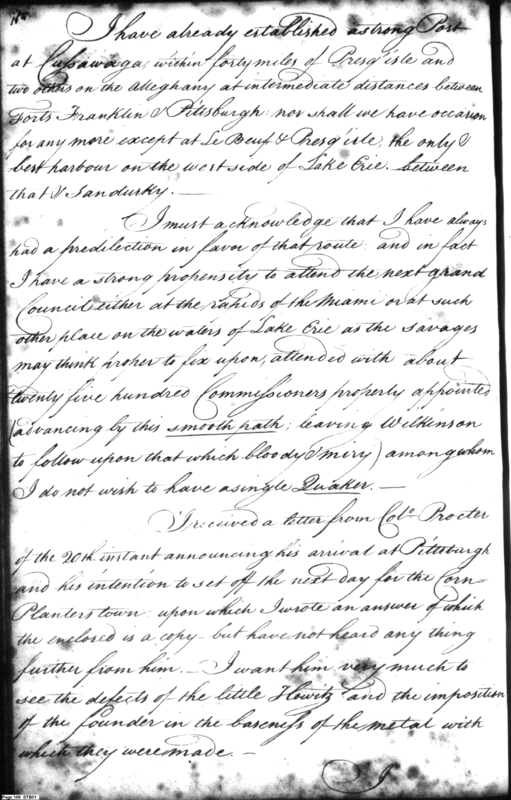 I have already established a strong Post
at Cussawaga, within forty miles of Presq'isle and
two others on the Alleghany at intermediate distances between
Forts Franklin & Pittsburgh: nor shall we have occasion
for any more except at Le Beuf & Presq'isle, the only &
best harbour on the west side of Lake Erie. between
that & Sandusky. —
I must acknowledge that I have always
had a predilection in favor of that route: and in fact
I have a strong propensity to attend the next grand
Council either at the rapids of the Miami or at such
other place on the waters of Lake Erie as the savages
may think proper to fix upon, attended with about
twenty five hundred Commissioners properly appointed
(advancing by this smooth path; leaving Wilkinson
to follow upon that which bloody & miry) among whom
I do not wish to have a single Quaker. —
I received a letter from Colo. Procter
of the 20th. instant announcing his arrival at Pittsburgh
and his intention to set off the next day for the Corn-
Planters town: upon which I wrote an answer of which
the enclosed is a copy - but have not heard any thing
further from him. — I want him very much to
see the defects of the little Howitz and the imposition
of the founder in the baseness of the metal with
which they were made. —
I
Page 166 DTB01